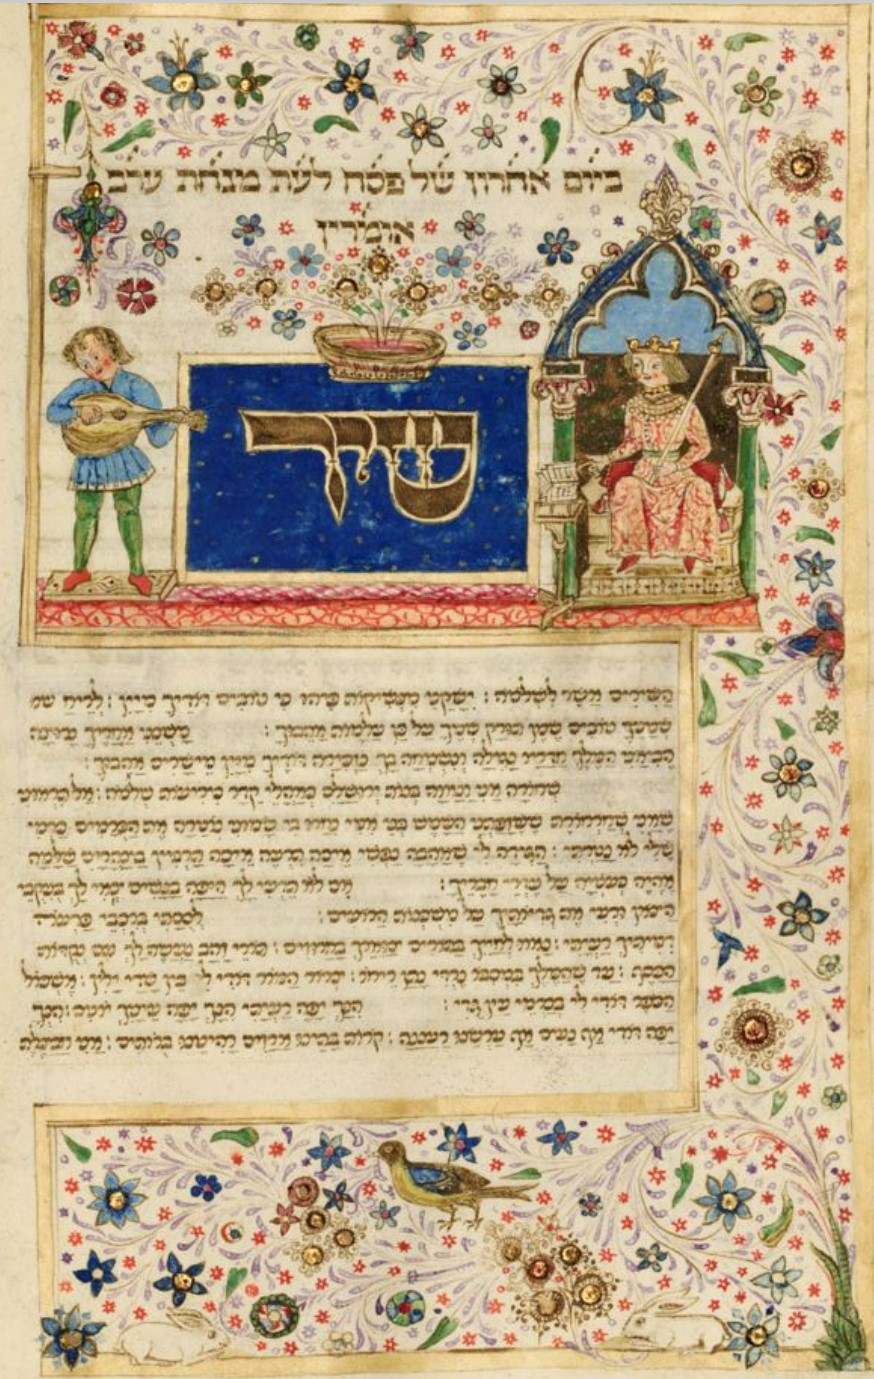 ביום אחרון של פסח לעת מנחת ערב
אומרין
שיר
השירים אשר לשלמה : ישקני מנשיקות פיהו כי טובים דודיך מיין : לריח שמ
שמניך טובים שמן תורק שמך על כן עלמות אהבוך : משכני אחריך נרוצה
הביאני המלך חדריו נגילה ונשמחה בך נזכירה דודיך מיין מישרים אהבוך :
שחורה אני ונאוה בנות ירושלם כאהלי קדר כיריעות שלמה : אל תראוני
שאני שחרחורת ששזפתני השמש בני אמי נחרו בי שמוני נוטרה את הכרמים כרמי
שלי לא נטרתי : הגידה לי שאהבה נפשי איכה תרעה איכה תרביץ בצהרים שלמה
אהיה כעטיה על עדרי חבריך : אם לא תדעי לך היפה בנשים צאי לך בעקבי
הצאן ורעי את גדיותיך על משכנות הרועים : לסוסתי ברכבי פרעה
דמיתיך רעיתי : נאוו לחייך בתורים צוארך בחרוזים : תורי זהב נעשה לך עם נקודות
הכסף : עד שהמלך במסבו נרדי נתן ריחו : צרור המור דודי לי בין שדי ילין : אשכול
הכפר דודי לי בכרמי עין גדי : הנך יפה רעיתי הנך יפה עיניך יונים : הנך
יפה דודי אף נעים אף ערשנו רעננה : קורות בתינו ארזים רהיטנו ברותים : אני חבצלת